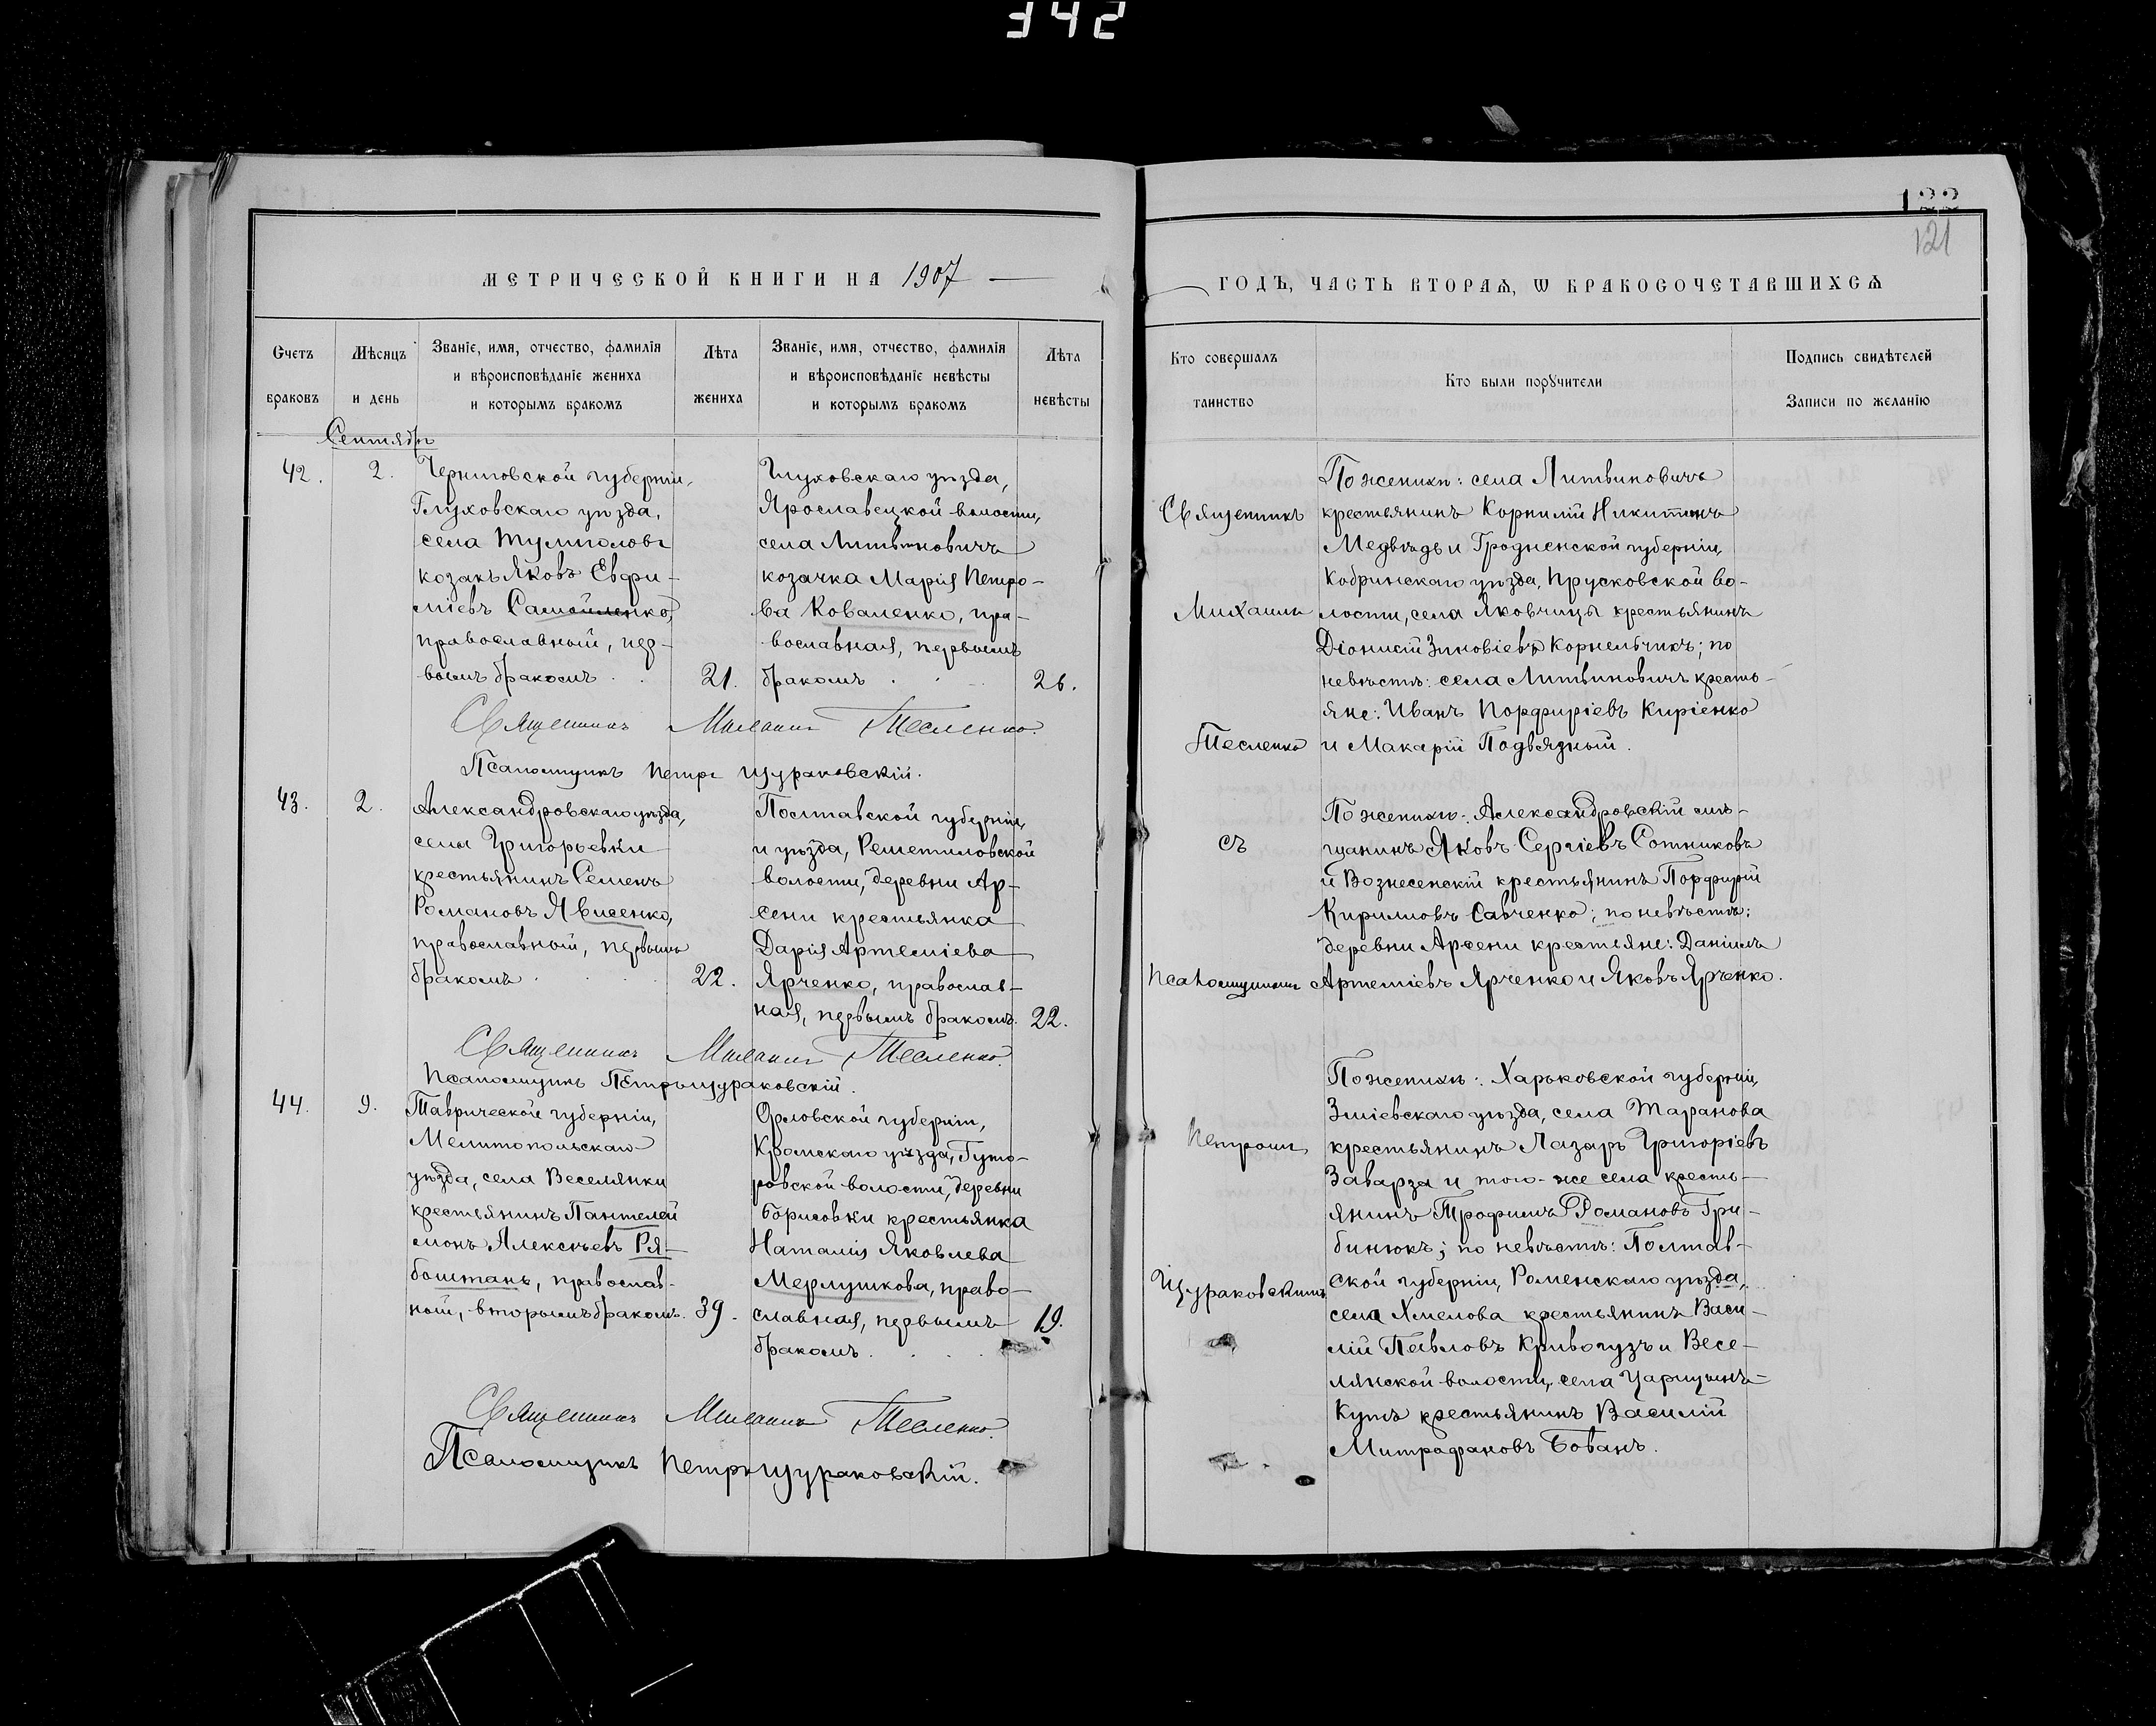 342
122
121
МЕТРИЧЕСКОЙ КНИГИ НА 1907
ГОДЪ, ЧАСТЬ ВТОРАѦ, Ѡ БРАКОСОЧЕТАВШИХСѦ
Счетъ
браковъ
Мѣсяцъ
и день
Званіе, имя, отчество, фамилія
и вѣроисповѣданіе жениха
и которымъ бракомъ
Лѣта
жениха
Званіе, имя, отчество, фамилія
и вѣроисповѣданіе невѣсты
и которымъ бракомъ
Лѣта
невѣсты
Кто совершалъ
таинство
Кто были порꙋчители
Подпись свидѣтелей
Записи по желанію
Сентябрь
42.
2.
Черниговской губерніи,
Глуховскаго уѣзда,
села Тулиголовъ
козакъ Яковъ Евфи-
міевъ Самойленко,
православный, пер-
вымъ бракомъ
21.
Глуховскаго уѣзда,
Ярославецкой волости,
села Литвиновичъ
козачка Марія Петро-
ва Коваленко, пра-
вославная, первымъ
бракомъ
26.
Священникъ Михаилъ Тесленко.
Псаломщикъ Петръ Щураковскій.
По женихѣ: села Литвиновичъ
крестьянинъ Корнилій Никитинъ
Медвѣдь и Гродненской губерніи,
Кобринскаго уѣзда, Прусковской во-
лости, села Яковчицы крестьянинъ
Діонисій Зиновіевъ Корнельчикъ; по
невѣстѣ: села Литвиновичъ кресть-
яне: Иванъ Порфиріевъ Киріенко
и Макарій Подвязный.
43.
2.
Александровскаго уѣзда,
села Григорьевки
крестьянинъ Семенъ
Романовъ Явисенко,
православный, первымъ
бракомъ
22.
Полтавской губерніи,
и уѣзда, Решетиловской
волости, деревни Ар-
сени крестьянка
Дарія Артеміева
Ярченко, православ-
ная, первымъ бракомъ.
22.
Священникъ Михаилъ Тесленко.
Псаломщикъ Петръ Щураковскій.
По женихѣ: Александровскій мѣ-
щанинъ Яковъ Сергіевъ Сотниковъ
и Вознесенскій крестьянинъ Порфирій
Кирилловъ Савченко; по невѣстѣ:
деревни Арсени крестьяне: Даніилъ
Артеміевъ Ярченко и Яковъ Ярченко.
44.
9.
Таврической губерніи,
Мелитопольскаго
уѣзда, села Веселянки
крестьянинъ Пантелей
монъ Алексѣевъ Ря-
боштанъ, православ-
ный, вторымъ бракомъ.
39.
Орловской губерніи,
Кромскаго уѣзда, Гуто-
ровской волости, деревни
Борисовки крестьянка
Наталія Яковлева
Мерлушкова, право-
славная, первымъ
бракомъ
19.
Священникъ Михаилъ Тесленко.
Псаломщикъ Петръ Щураковскій.
По женихѣ: Харьковской губерніи,
Зміевскаго уѣзда, села Таранова
крестьянинъ Лазарь Григоріевъ
Заварза и того-же села кресть-
янинъ Трофимъ Романовъ Гри-
бинюкъ; по невѣстѣ: Полтав-
ской губерніи, Роменскаго уѣзда,
села Хмелова крестьянинъ Васи-
лій Павловъ Кривогузъ и Весе-
лянской волости, села Царицынъ-
Кутъ крестьянинъ Василій
Митрофановъ Бованъ.
Священникъ
Михаилъ
Тесленко
съ
Псаломщикомъ
Петромъ
Щураковскимъ